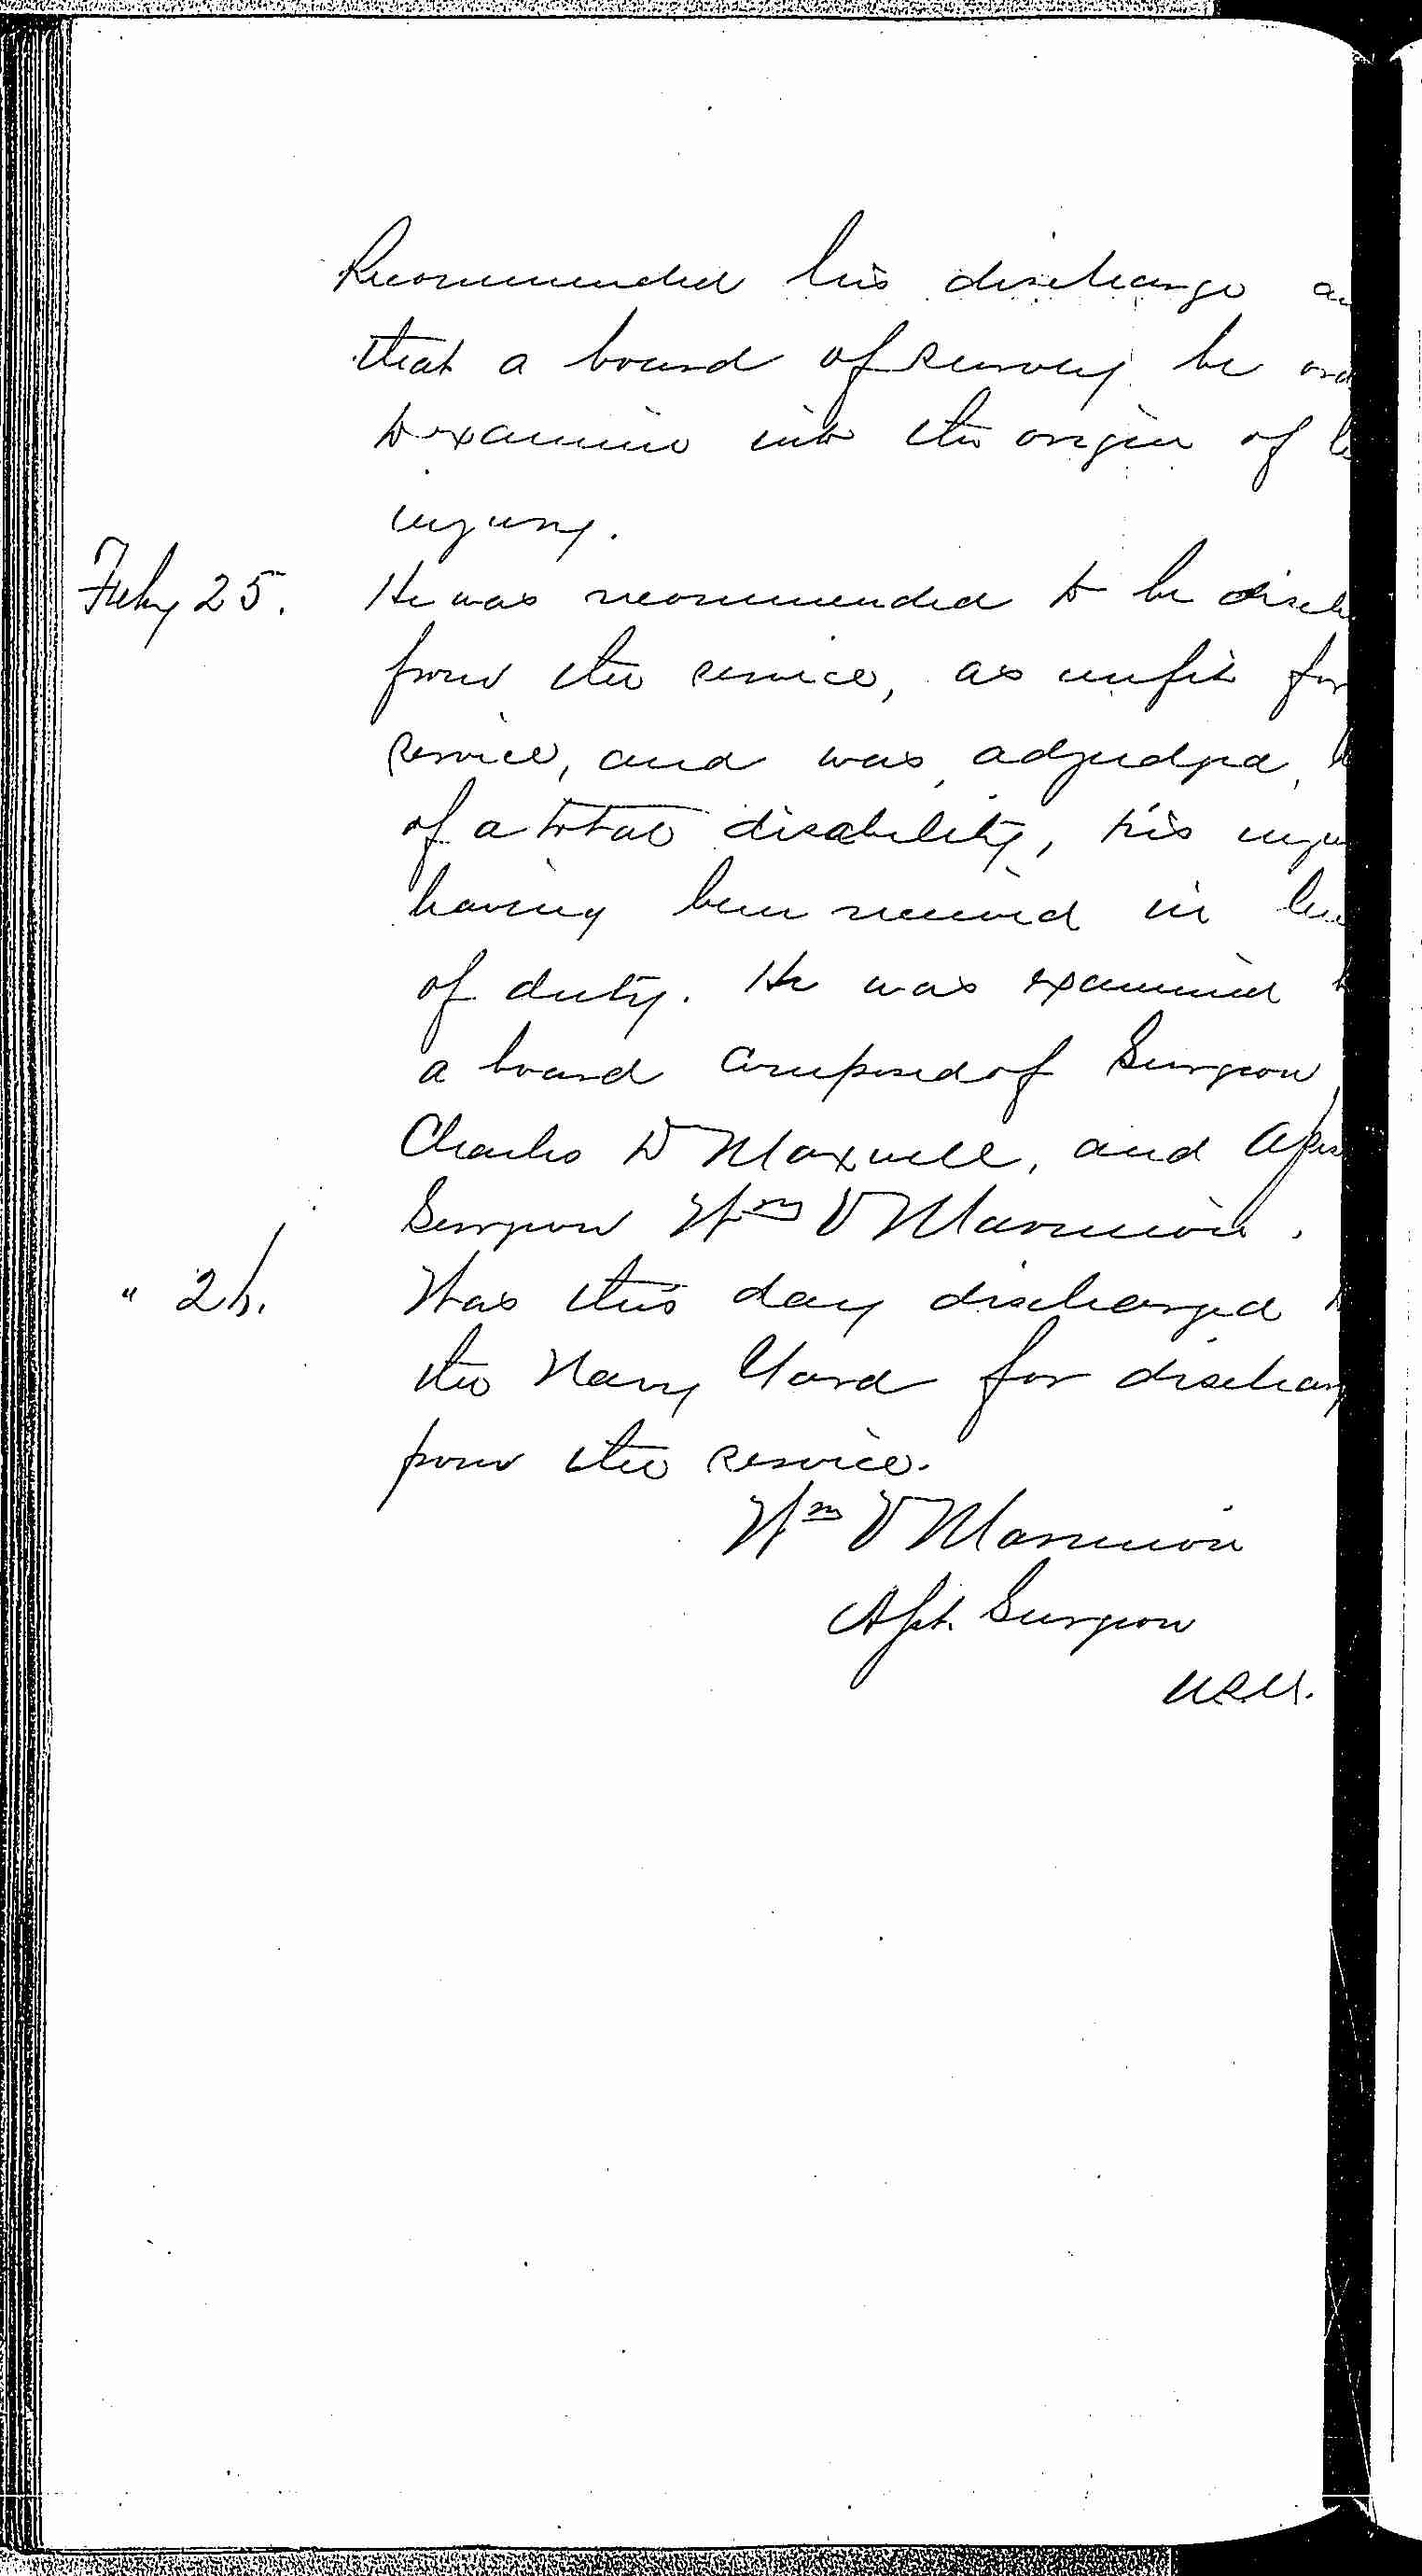 Recommended his discharge an
that a board of survey be ord
to examine into the origin of h
injury.
Feby 25. He was recommended to be disch
from the service, as unfit for
service, and was, adjudged,
of a total disability, his inju
having been received in line
of duty. He was examined b
a board composed of Surgeon
Charles D Maxwell, and Ass
Surgeon Wm V Marmion.
" 26. Was this day discharged to
the Navy Yard for discharg
from the service.
Wm V Marmion
Asst. Surgeon
U.S.N.